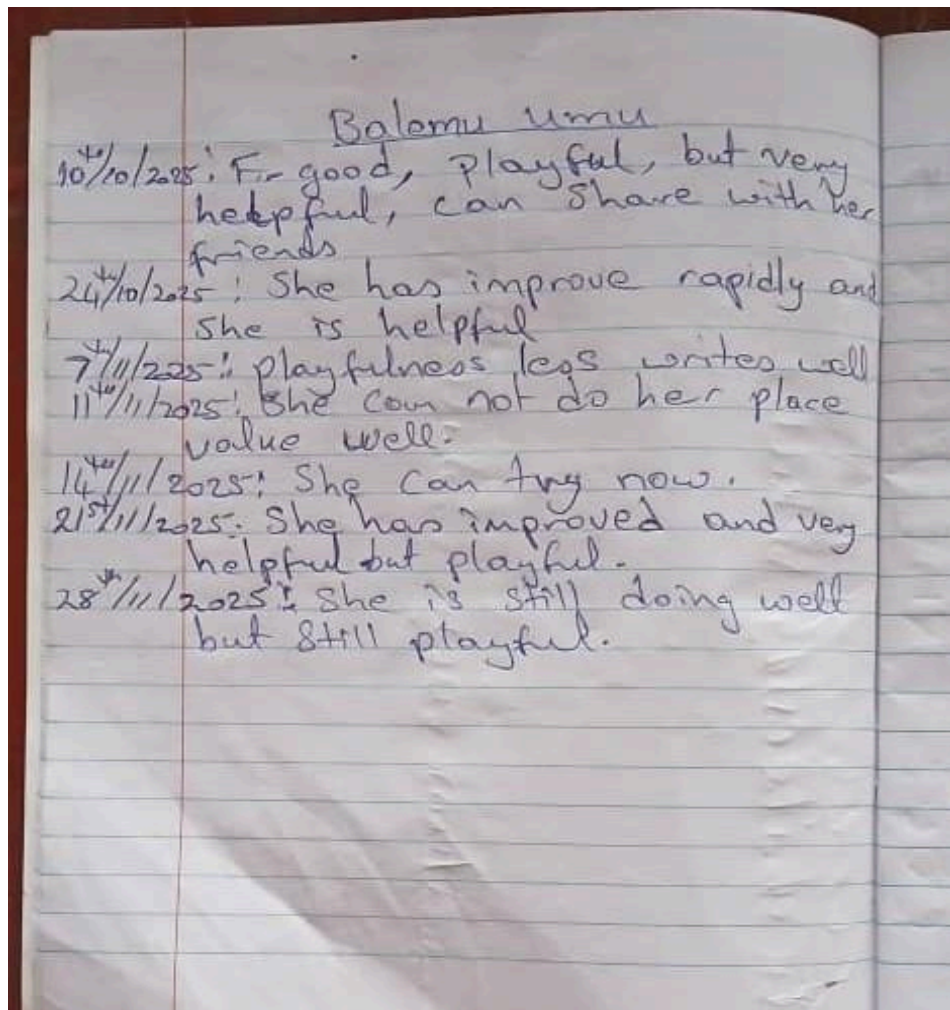 Balemu Umu
10th/10/2025: F. good, playful, but very
helpful, can share with her
friends
24th/10/2025: She has improve rapidly and
she is helpful
7th/11/2025: playfulness less writes well
11th/11/2025: She can not do her place
value well.
14th/11/2025: She can try now.
21st/11/2025: She has improved and very
helpful but playful.
28th/11/2025: She is still doing well
but still playful.